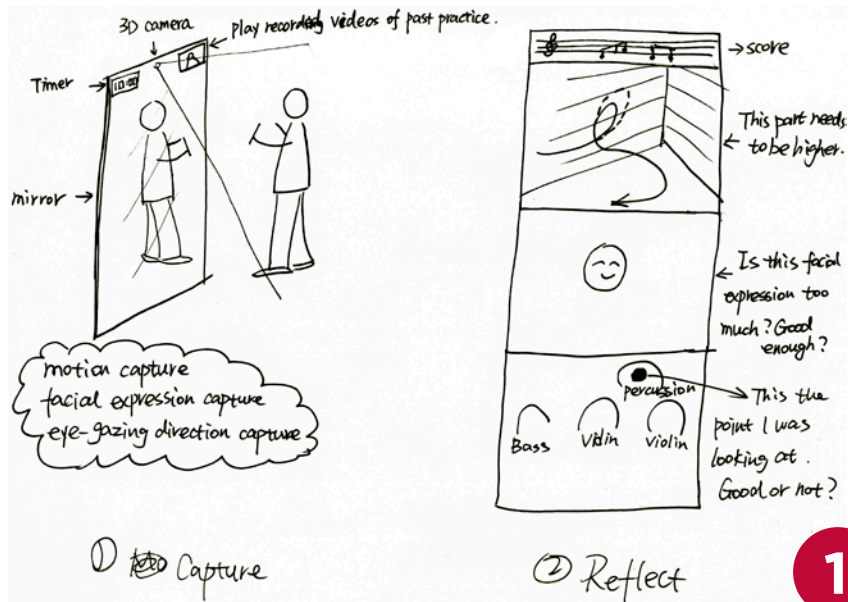 3D camera
play recorded videos of past practice.
Timer
10:00
mirror
motion capture
facial expression capture
eye-gazing direction capture
① Capture
score
This part needs
to be higher.
Is this facial
expression too
much? Good
enough?
percussion
Bass
Violin
Violin
This the
point I was
looking at.
Good or not?
② Reflect
1